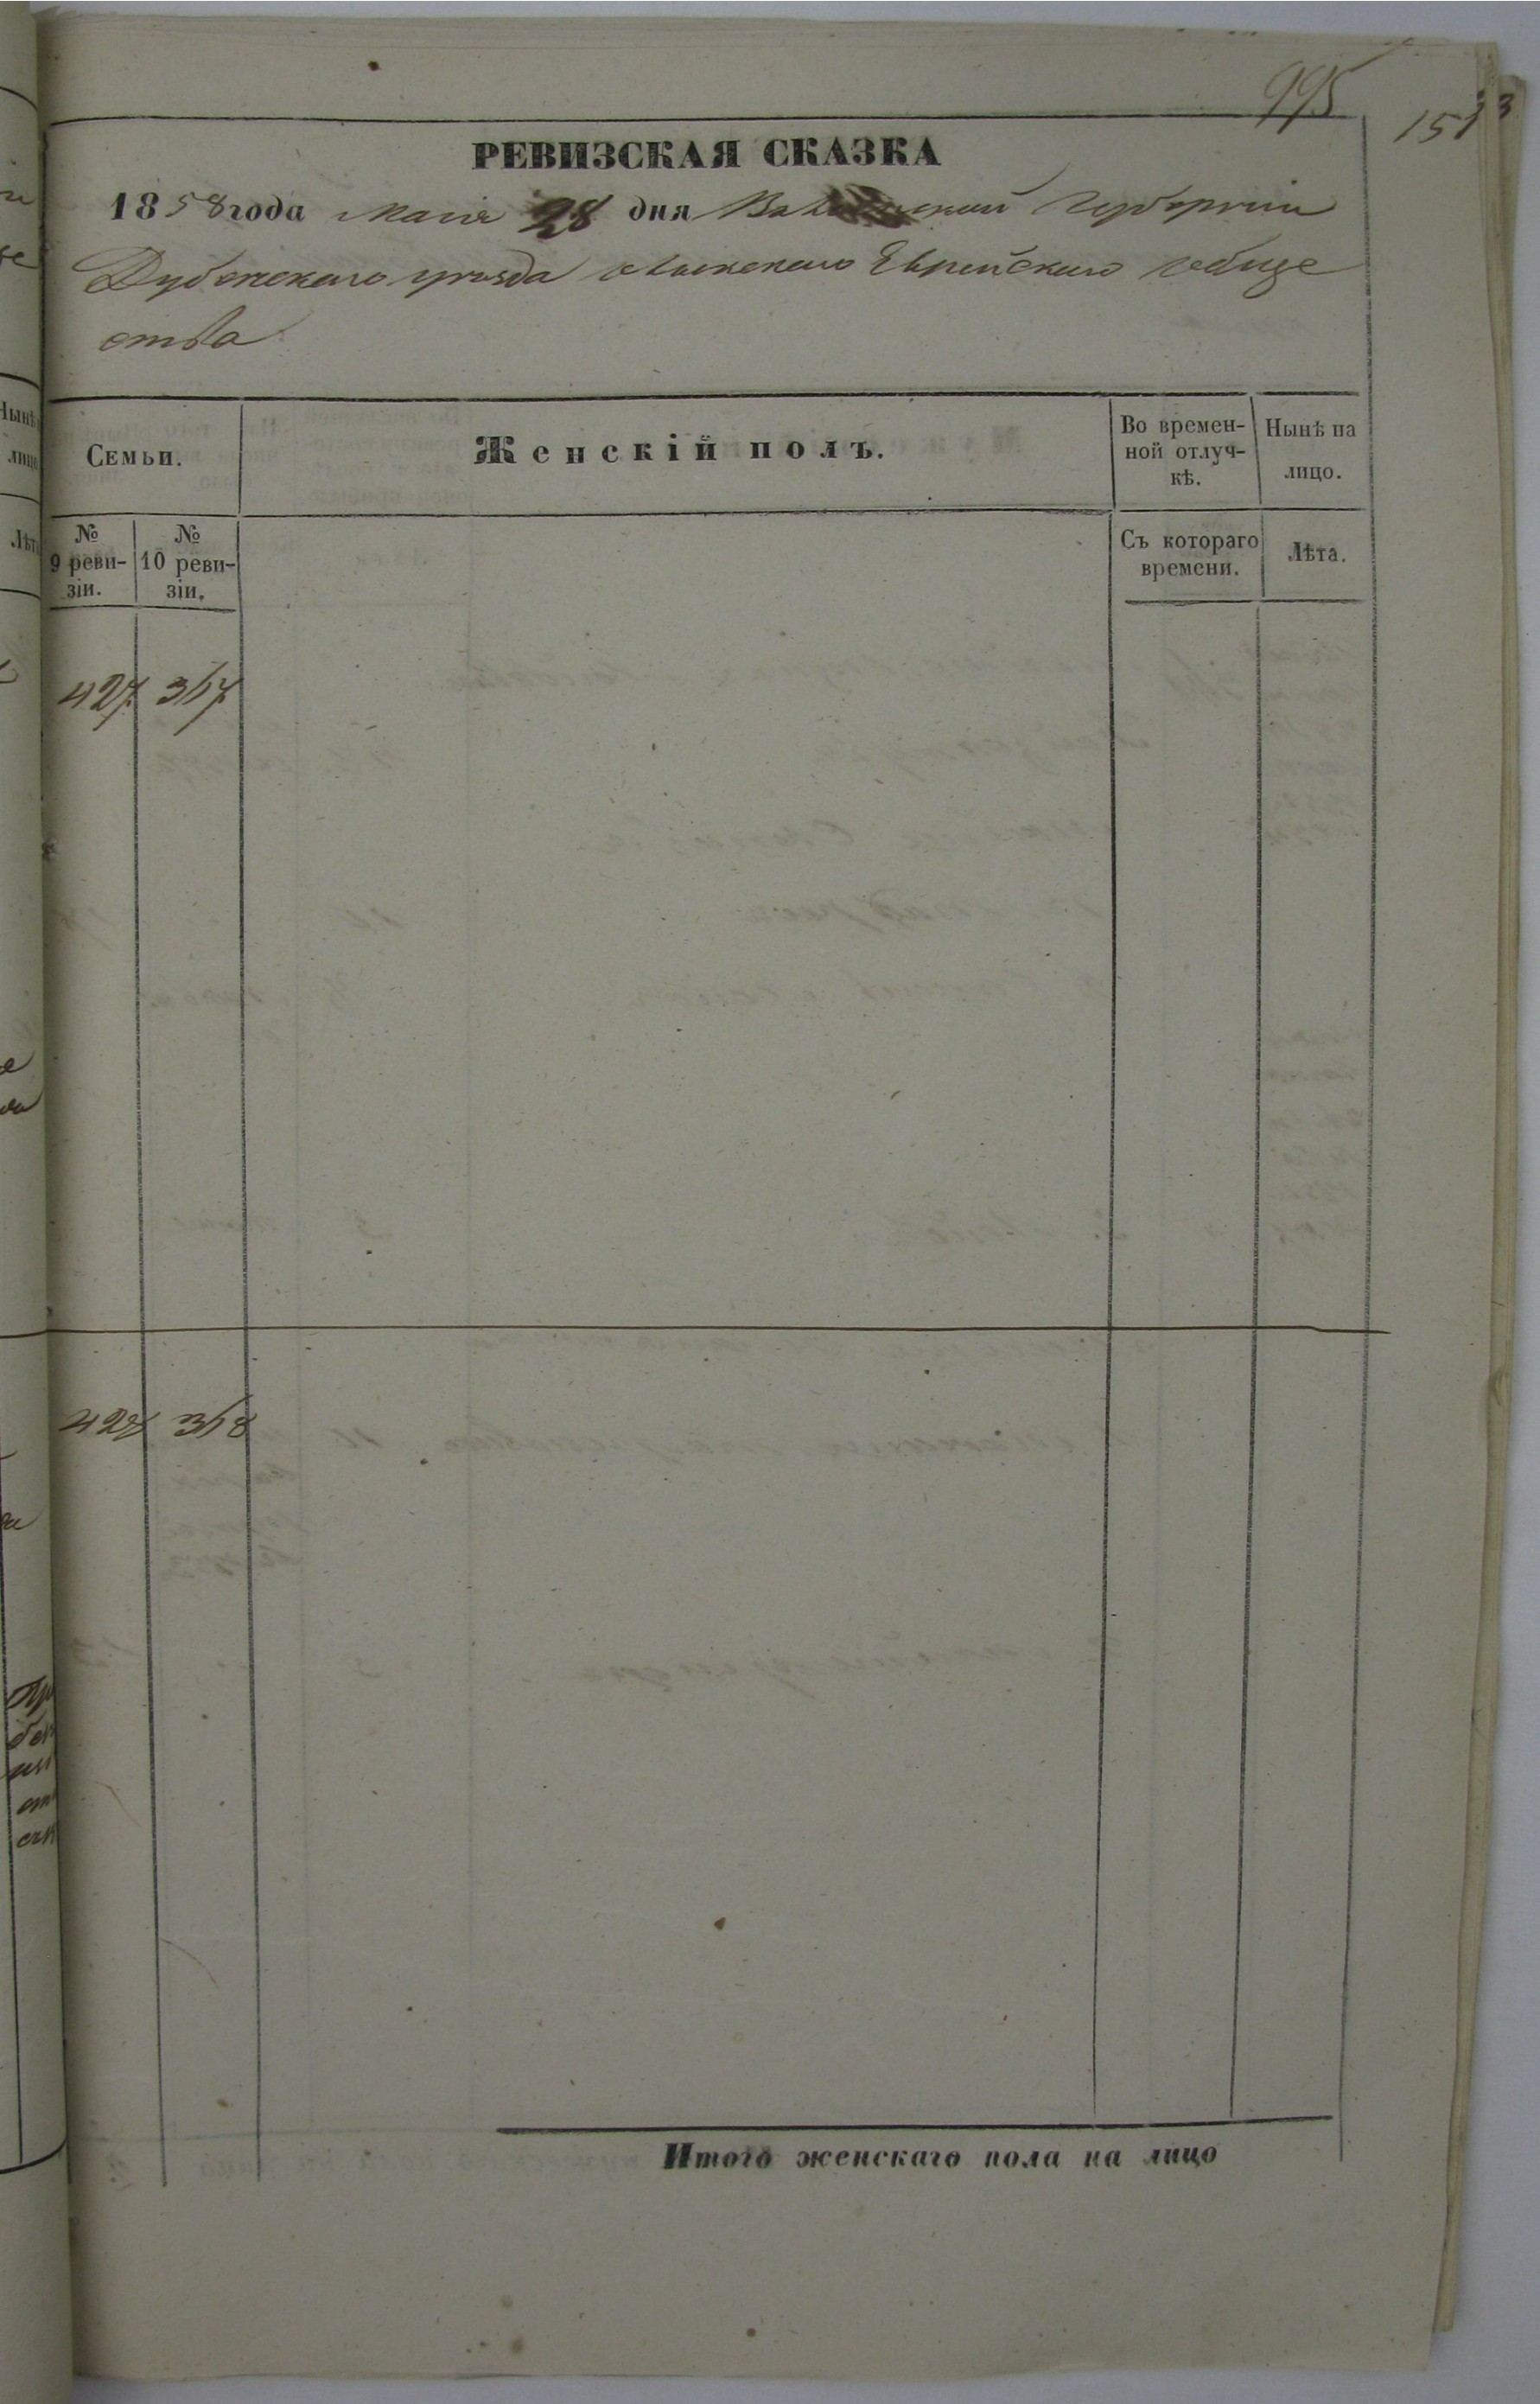 995
РЕВИЗСКАЯ СКАЗКА
1858 года Маія 28 дня Волынской Губерніи
Дубенскаго уѣзда Еврейскаго обще
ства
Семьи.
Женскій полъ.
Во времен-
ной отлуч-
кѣ.
Нынѣ на
лицо.
№
9 реви-
зіи.
№
10 реви-
зіи.
Съ котораго
времени.
Лѣта.
427 367
428 368
Итого женскаго пола на лицо